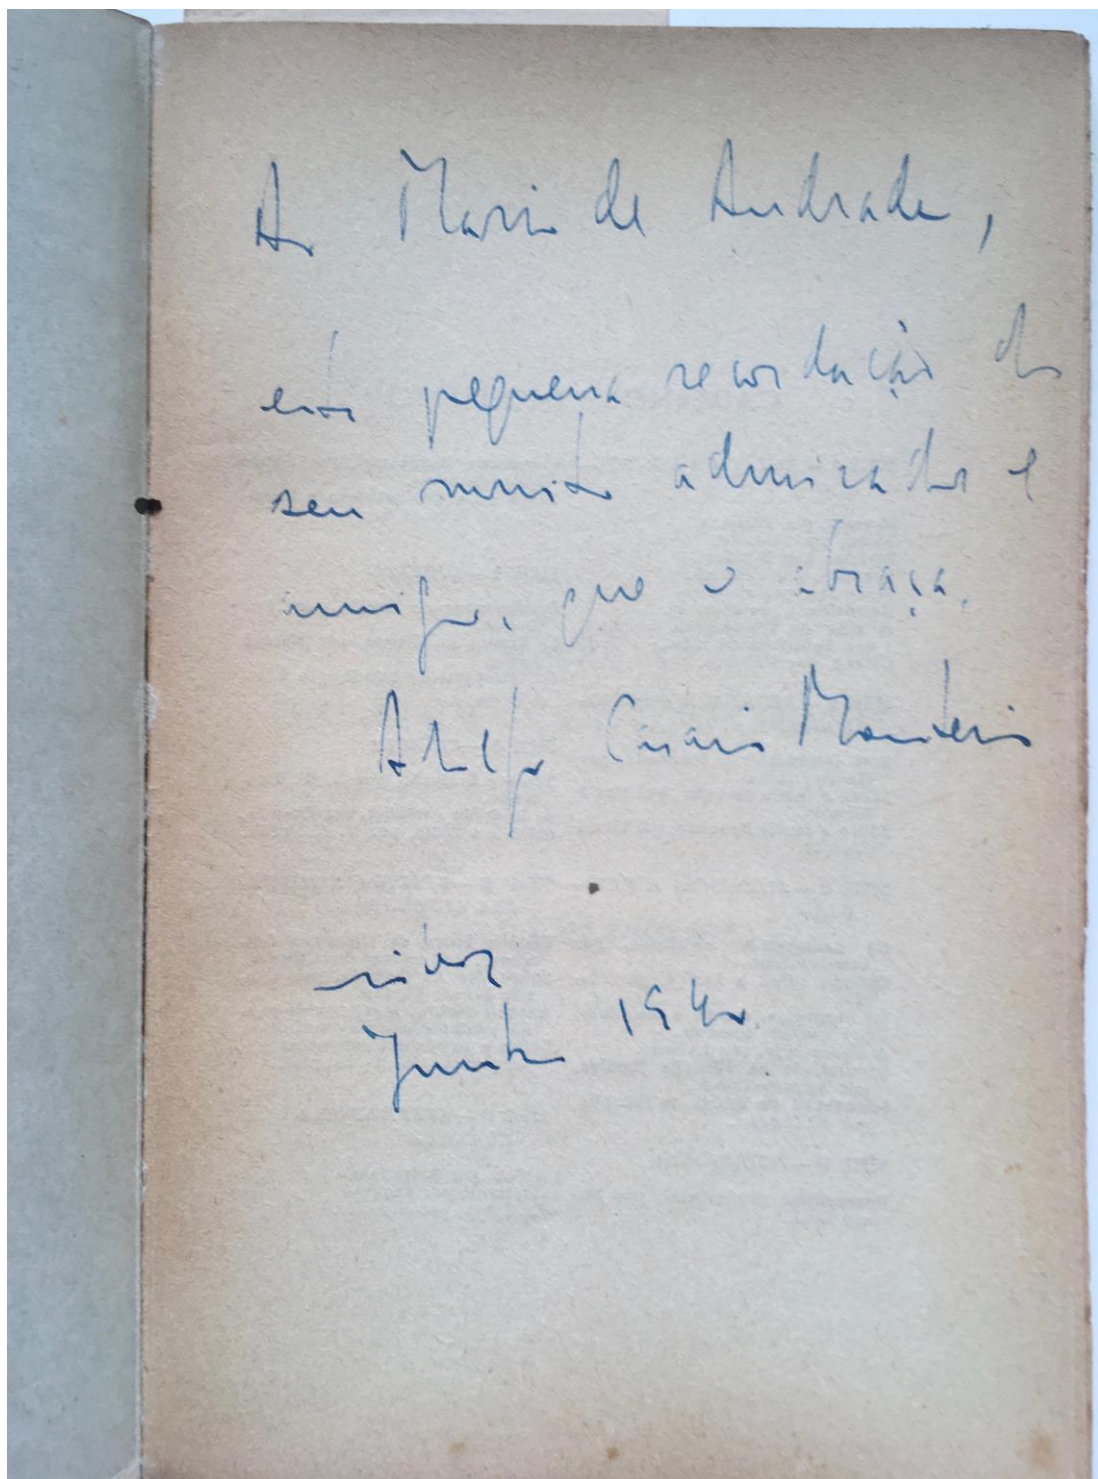 Ao Mario de Andrade,
esta pequena recordação do
seu muito admirador e
amigo, que o abraça,
Adolfo Casais Monteiro
Junho 1940